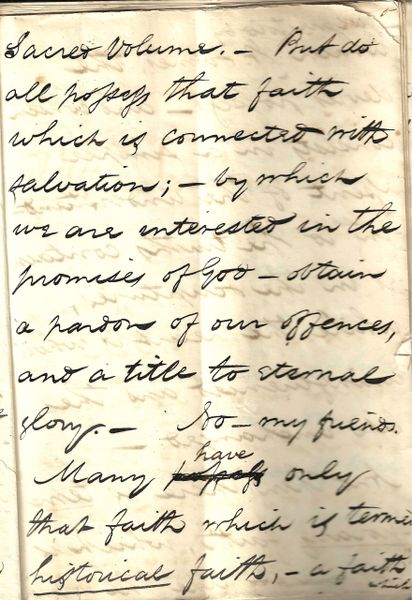 Sacred Volume. – But do
all possess that faith
which is connected with
salvation; – by which
we are interested in the
promises of God – obtain
a pardon of our offences,
and a title to eternal
glory. – No – my friends.
have
Many possess only
that faith which is terme
historical faith, – a faith
which